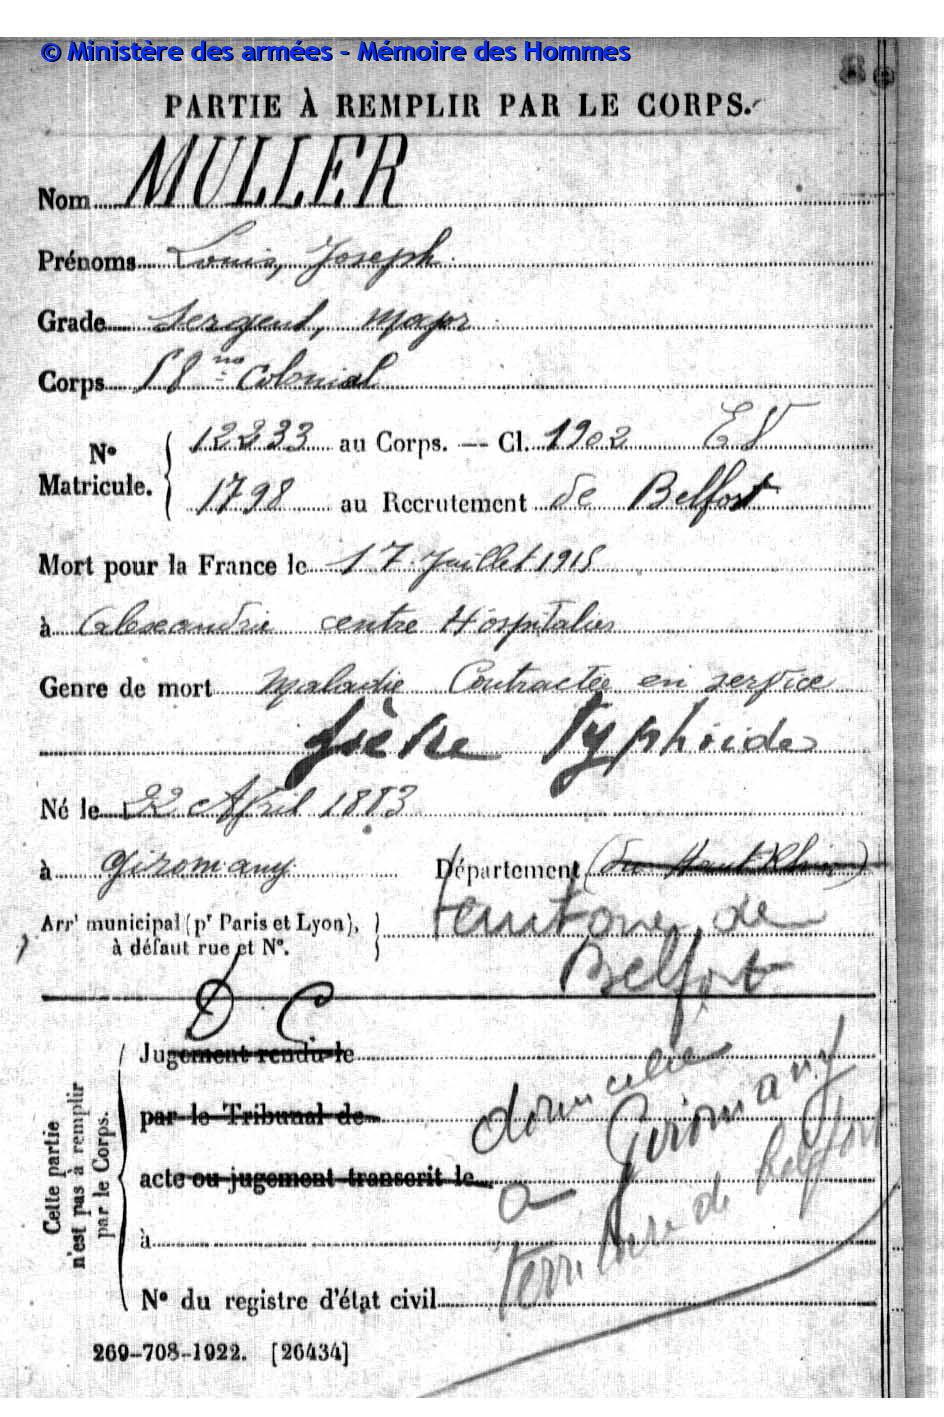 © Ministère des armées - Mémoire des Hommes
PARTIE À REMPLIR PAR LE CORPS.
Nom MULLER
Prénoms Louis, Joseph
Grade Sergent, Major
Corps 58 me Colonial
12233 au Corps. — Cl. 1902 EV
N° Matricule.
1798 au Recrutement de Belfort
Mort pour la France le 17 Juillet 1915
à Alexandrie centre Hospitalier
Genre de mort Maladie Contractée en service
fièvre typhoïde
Né le 22 Avril 1883
à Giromany Département (du Haut Rhin)
Arrt municipal (pr Paris et Lyon), territoire de
à défaut rue et N°. Belfort
D C
Jugement rendu le
par le Tribunal de
acte ou jugement transcrit le
à
N° du registre d'état civil
domicilié
à Giromany
territoire de Belfort
Cette partie
n'est pas à remplir
par le Corps.
269-708-1922. [26434]